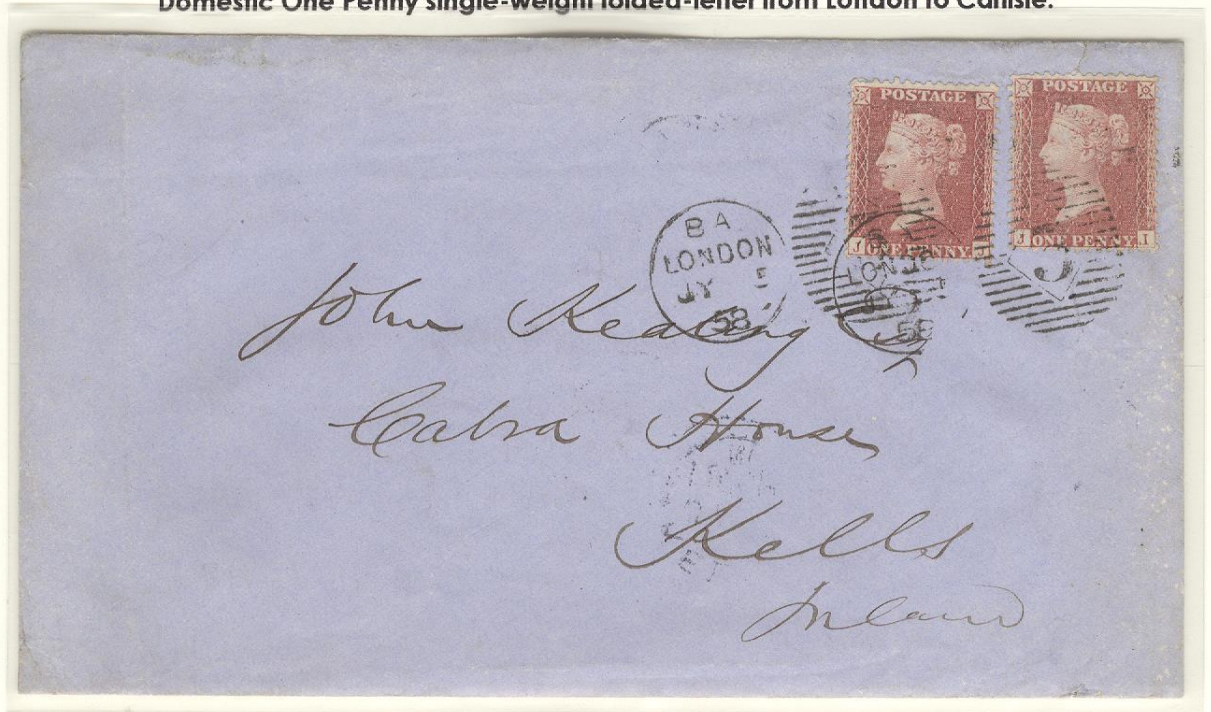 Domestic One Penny single-weight folded-letter from London to Carlisle.
POSTAGE
POSTAGE
J ONE PENNY. J
J ONE PENNY. I
BA
LONDON
JY 5
58
LONDON
58
5
John Keating Esqr
Cabra House
Kells
Ireland